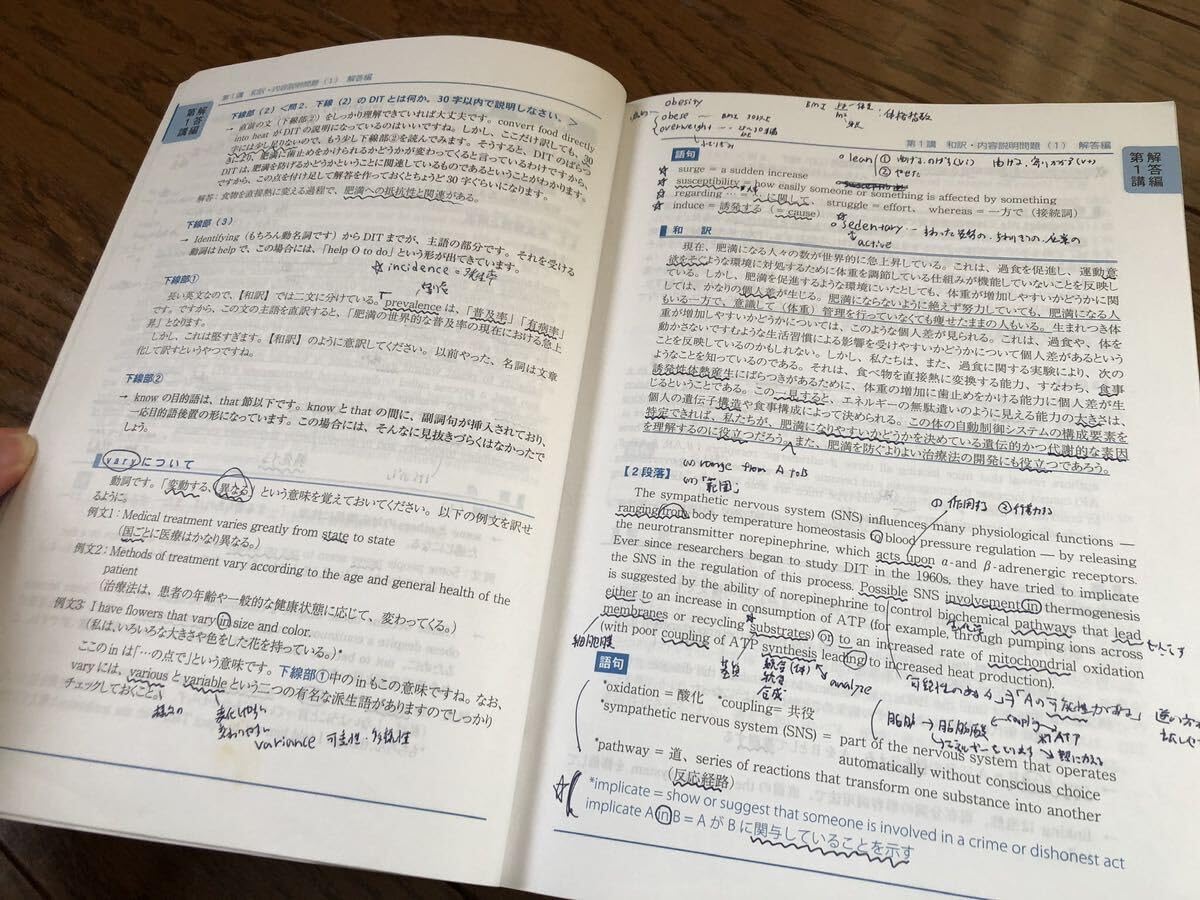 第1講 和訳・内容説明問題(1) 解答編
解答編
第1講
下線部(2)<問2.下線(2)のDITとは何か。30字以内で説明しなさい。>
→ 直前の文(下線部②)をしっかり理解できていれば大丈夫です。convert food directly
into heat がDITの説明になっているのはいいですね。しかし、ここだけ訳しても、30
字には少し足りないので、もう少し下線部②を読んでみます。そうすると、DITのばらつ
きにより、肥満に歯止めをかけられるかどうかが変わってくると言っているわけですから、
DITは、肥満を防げるかどうかということに関連しているものであるということがわかります。
ですから、この点を付け足して解答を作っておくとちょうど30字ぐらいになります。
解答:食物を直接熱に変える過程で、肥満への抵抗性と関連がある。
下線部(3)
→ Identifying(もちろん動名詞です)からDITまでが、主語の部分です。それを受ける
動詞はhelpで、この場合には、「help O to do」という形が出てきています。
☆ incidence = 発生率
下線部①
長い英文なので、【和訳】では二文に分けている。prevalenceは、「普及率」「有病率」
です。ですから、この文の主語を直訳すると、「肥満の世界的な普及率の現在における急上
昇」となります。
しかし、これは堅すぎます。【和訳】のように意訳してください。以前やった、名詞は文章
化して訳すというやつですね。
下線部②
→ knowの目的語は、that節以下です。knowとthatの間に、副詞句が挿入されており、
一応目的語後置の形になっています。この場合には、そんなに見抜きづらくはなかったで
しょう。
varyについて
動詞です。「変動する、異なる」という意味を覚えておいてください。以下の例文を訳せ
るように。
例文1:Medical treatment varies greatly from state to state
(国ごとに医療はかなり異なる。)
例文2:Methods of treatment vary according to the age and general health of the
patient
(治療法は、患者の年齢や一般的な健康状態に応じて、変わってくる。)
例文3:I have flowers that vary in size and color.
(私は、いろいろな大きさや色をした花を持っている。)
ここのinは「…の点で」という意味です。下線部①中のinもこの意味ですね。なお、
varyには、variousとvariableという二つの有名な派生語がありますのでしっかり
チェックしておくこと。
variance 可変性・多様性
obesity
obese
overweight
BMI
体格指数
第1講 和訳・内容説明問題(1) 解答編
解答編
第1講
語句
☆ surge = a sudden increase
☆ susceptibility = how easily someone or something is affected by something
☆ regarding … = …に関して、 struggle = effort、 whereas = 一方で(接続詞)
☆ induce = 誘発する(= cause)
lean ① ②
sedentary
active
和訳
現在、肥満になる人々の数が世界的に急上昇している。これは、過食を促進し、運動意
欲をそぐような環境に対処するために体重を調節している仕組みが機能していないことを反映し
ている。しかし、肥満を促進するような環境にいたとしても、体重が増加しやすいかどうかに関
しては、かなりの個人差が生じる。肥満にならないように絶えず努力していても、肥満になる人
もいる一方で、意識して(体重)管理を行っていなくても痩せたままの人もいる。生まれつき体
重が増加しやすいかどうかについては、このような個人差が見られる。これは、過食や、体を
動かさないですむような生活習慣による影響を受けやすいかどうかについて個人差があるという
ことを反映しているのかもしれない。しかし、私たちは、また、過食に関する実験により、次の
ようなことを知っているのである。それは、食べ物を直接熱に変換する能力、すなわち、食事
誘発性体熱産生にばらつきがあるために、体重の増加に歯止めをかける能力に個人差が生
じるということである。この一見すると、エネルギーの無駄遣いのように見える能力の大きさは、
個人の遺伝子構造や食事構成によって決められる。この体の自動制御システムの構成要素を
特定できれば、私たちが、肥満になりやすいかどうかを決めている遺伝的かつ代謝的な素因
を理解するのに役立つだろう。また、肥満を防ぐよりよい治療法の開発にも役立つであろう。
【2段落】
range from A to B
「範囲」
① 作用する
The sympathetic nervous system (SNS) influences many physiological functions —
ranging from body temperature homeostasis to blood pressure regulation — by releasing
the neurotransmitter norepinephrine, which acts upon α- and β-adrenergic receptors.
Ever since researchers began to study DIT in the 1960s, they have tried to implicate
the SNS in the regulation of this process. Possible SNS involvement in thermogenesis
is suggested by the ability of norepinephrine to control biochemical pathways that lead
either to an increase in consumption of ATP (for example, through pumping ions across
membranes or recycling substrates) or to an increased rate of mitochondrial oxidation
(with poor coupling of ATP synthesis leading to increased heat production).
細胞膜
基質
統合(体)
総合
合成
analyze
語句
*oxidation = 酸化 *coupling = 共役
*sympathetic nervous system (SNS) = part of the nervous system that operates
automatically without conscious choice
*pathway = 道、series of reactions that transform one substance into another
(反応経路)
☆ *implicate = show or suggest that someone is involved in a crime or dishonest act
implicate A in B = A が B に関与していることを示す
脂肪 → 脂肪酸
coupling
ATP